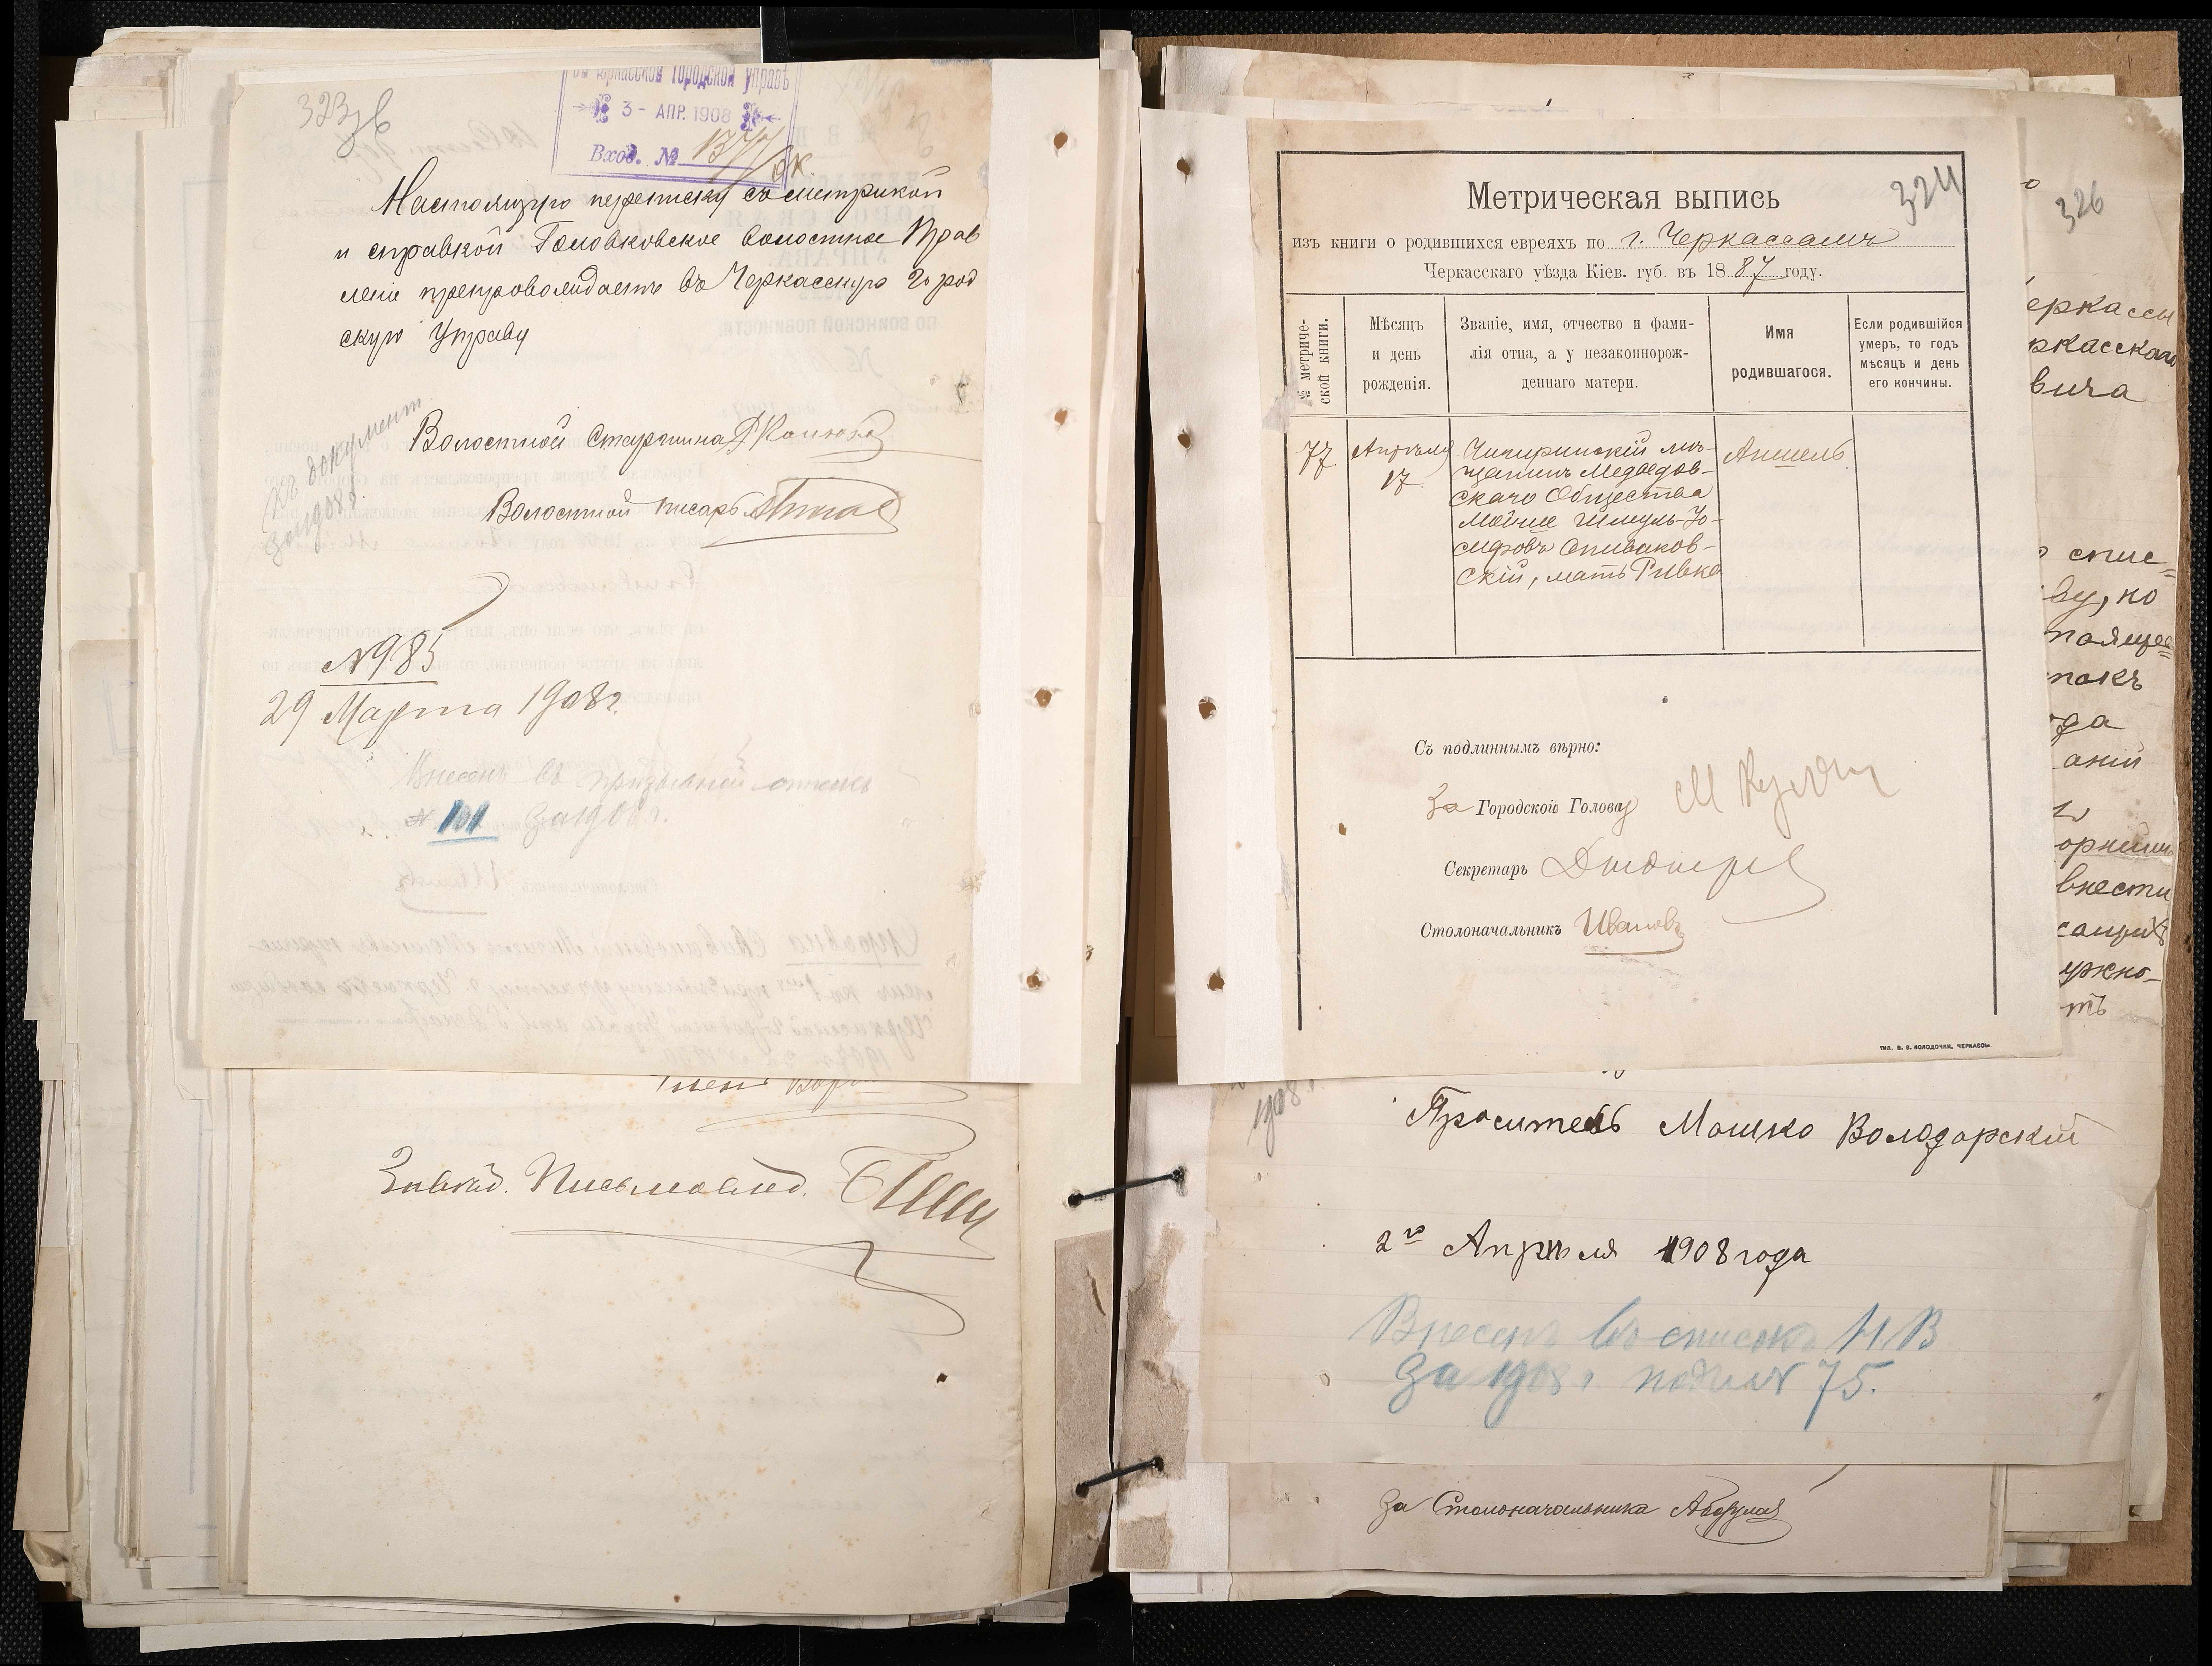 323 об
въ Черкасской Городской Управѣ
3 - АПР. 1908
Вход. №
Настоящую переписку съ метрикой
и справкой Головковское Волостное Прав
леніе препровождаетъ въ Черкасскую Город
скую Управу
Волостной Старшина
Волостной писарь
Къ документ.
за 1908 г.
№ 985
29 Марта 1908 г.
Внесенъ въ призывной списокъ
№ 101 за 1908 г.
Членъ
Завѣд. Письмовод.
324
Метрическая выпись
изъ книги о родившихся евреяхъ по г. Черкассамъ
Черкасскаго уѣзда Кіев. губ. въ 1887 году.
№ метриче-
ской книги.
Мѣсяцъ
и день
рожденія.
Званіе, имя, отчество и фами-
лія отца, а у незаконнорож-
деннаго матери.
Имя
родившагося.
Если родившійся
умеръ, то годъ
мѣсяцъ и день
его кончины.
77
Апрѣля
17.
Чигиринскій мѣ-
щанинъ Медвѣдов-
скаго Общества
Мойше Шмуль-Іо-
сифовъ Спиваков-
скій, мать Ривка
Аншель
Съ подлиннымъ вѣрно:
За Городского Голову
Секретарь
Столоначальникъ Ивановъ
ТИП. В. В. КОЛОДОЧКИ, ЧЕРКАССЫ.
1908 г.
Проситель Мошко Володарскій
2го Апрѣля 1908 года
Внесенъ въ списокъ Н. В
за 1908 г. подъ № 75.
За Столоначальника
326
еркассы
ркасскаго
вича
спис=
ву, ко
тоящее=
такъ
да
аній
внести
ужно-
тъ